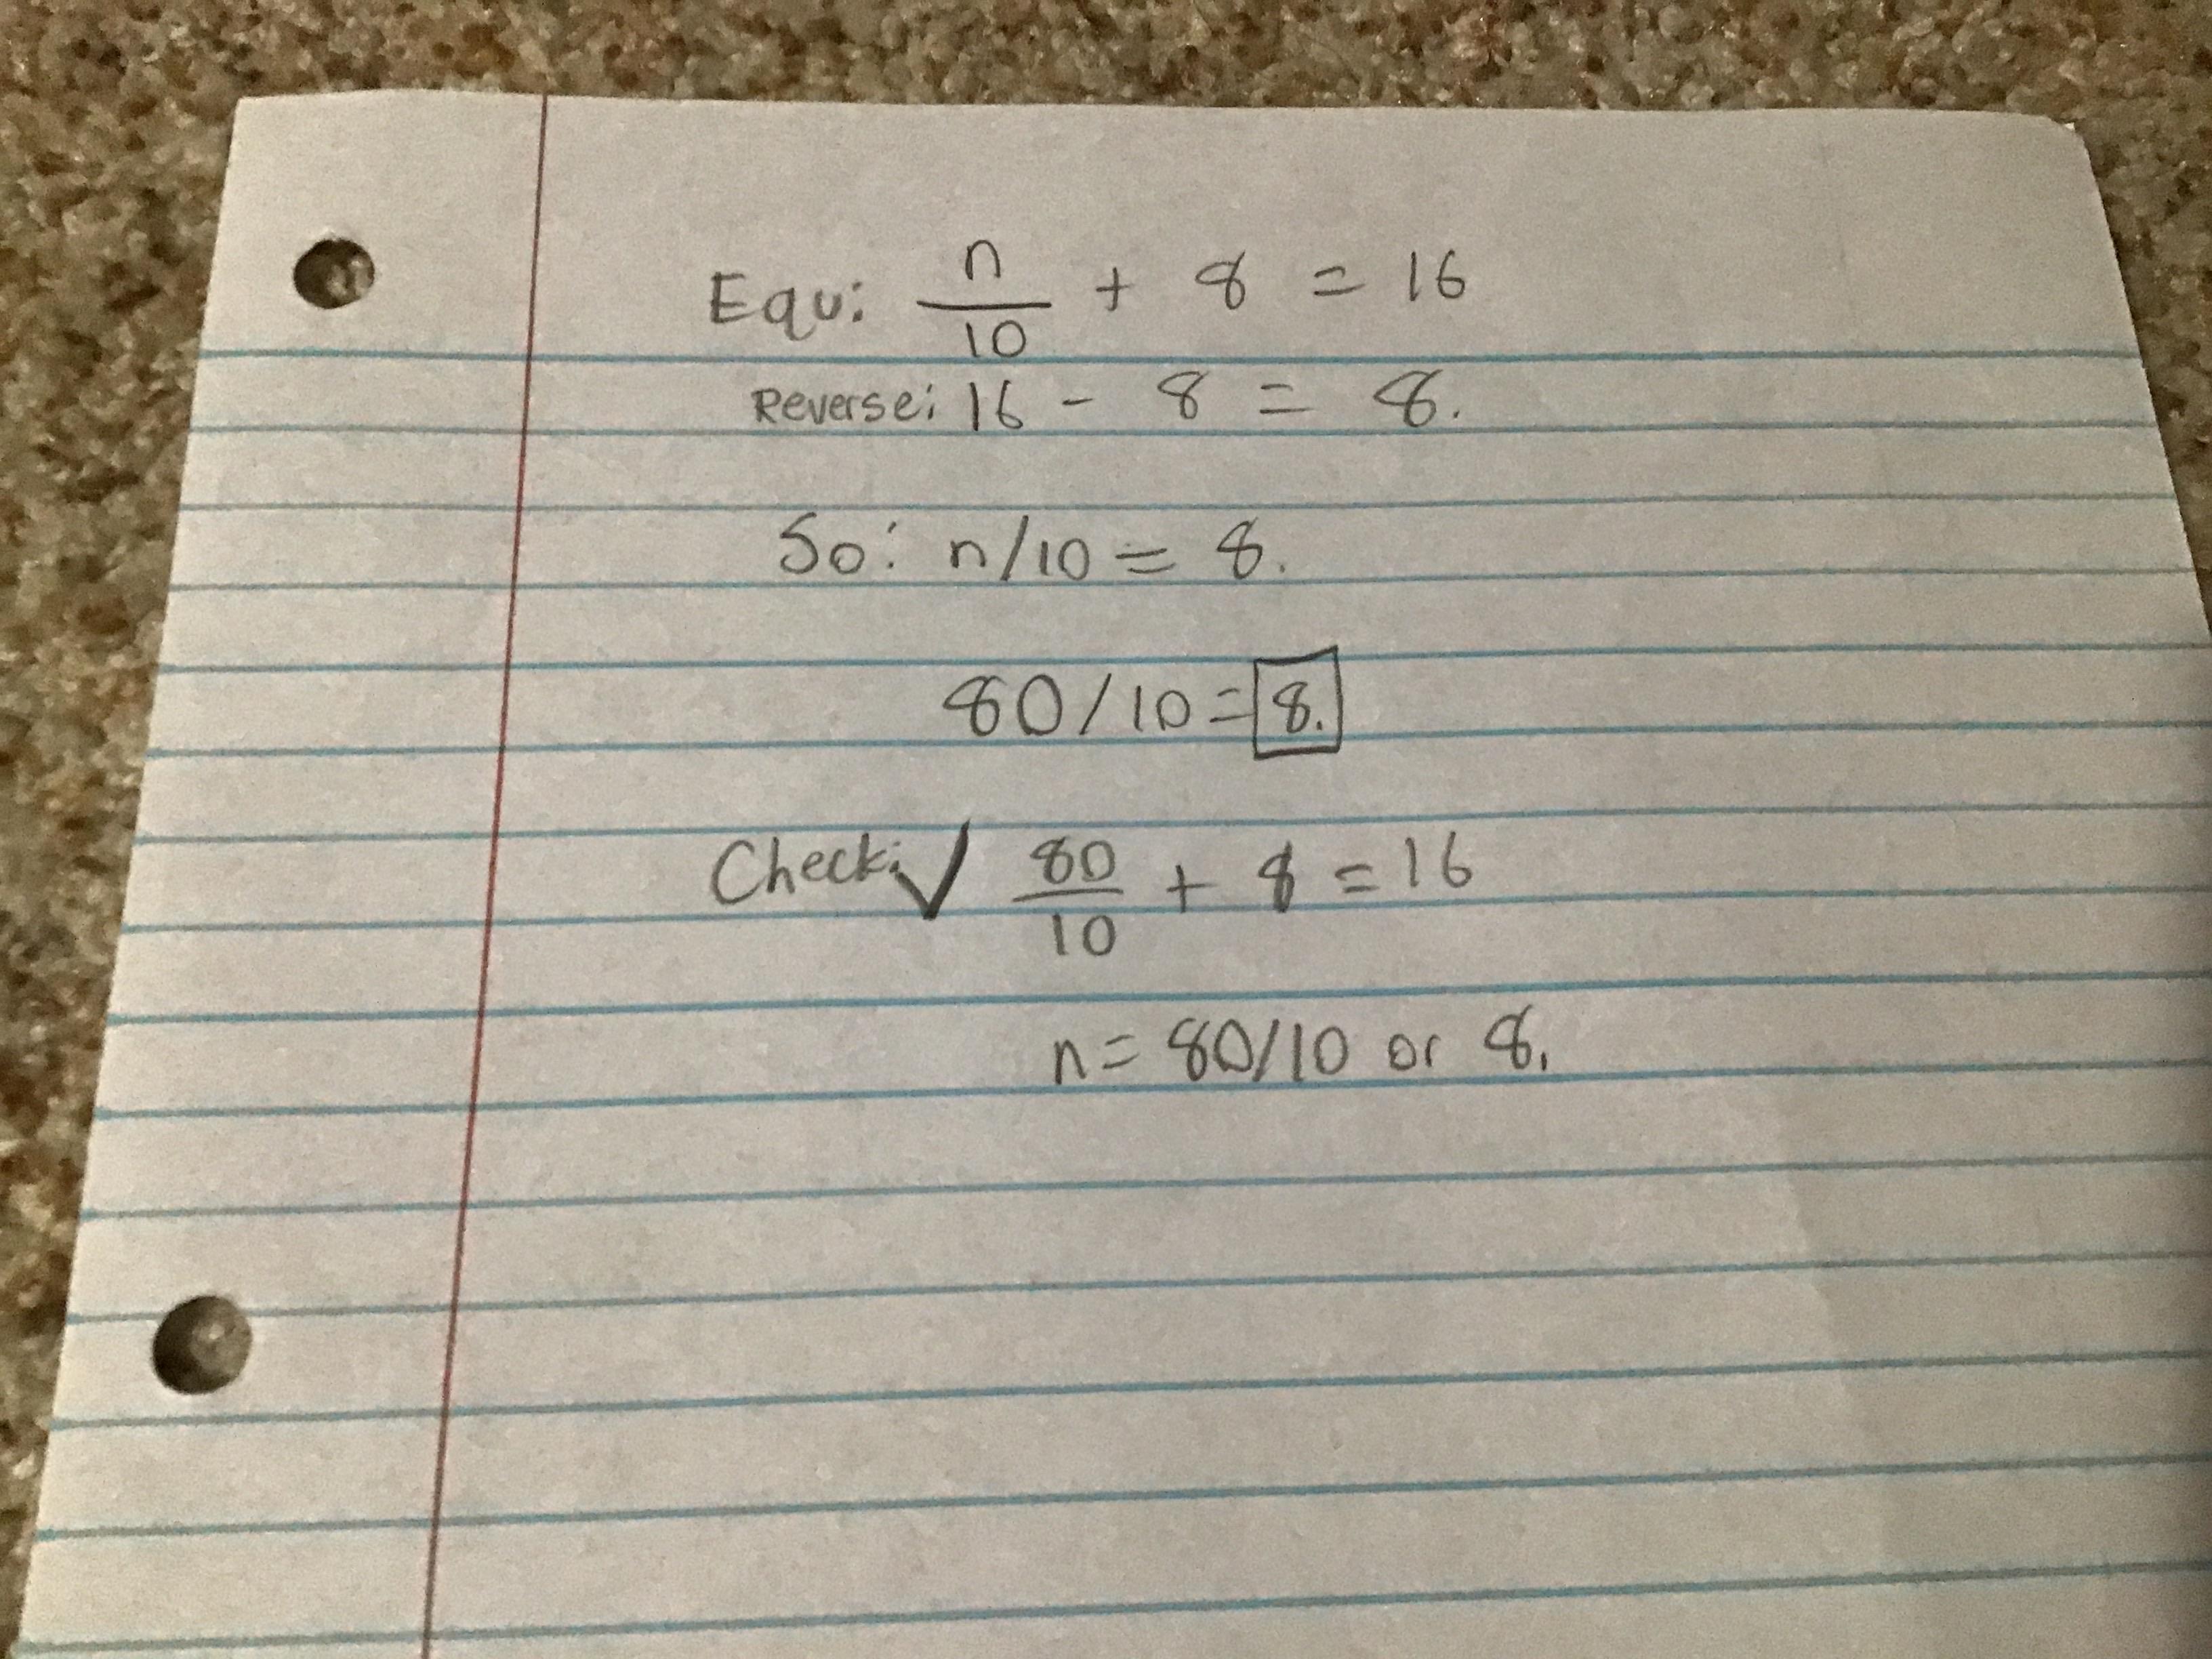 Equ: n/10 + 8 = 16
Reverse: 16 - 8 = 8.
So: n/10 = 8.
80/10 = 8.
Check: ✓ 80/10 + 8 = 16
n = 80/10 or 8.